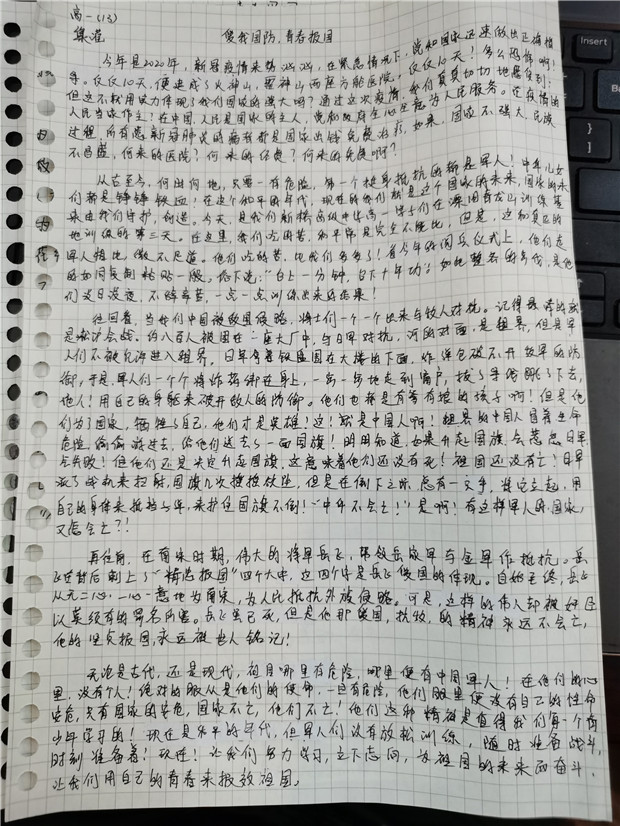 高一(13)
爱我国防,青春报国
今年是2020年,新冠疫情来势汹汹,在紧急情况下,党和国家迅速做出正确指
导。仅仅10天,便建成了火神山,雷神山两座方舱医院,仅仅10天!多么恐怖啊!
但这不就用实力体现了我们国家的强大吗?通过这次疫情,我们真真切切地感受到
人民当家作主!在中国,人民是国家的主人,党和政府全心全意为人民服务。在疫情的
过程,所有患新冠肺炎的病者都是国家出钱免费治疗,如果,国家不强大,民族
不昌盛,何来的医院?何来的经费?何来的免费啊?
从古至今,何时何地,只要一有危险,第一个挺身抵抗的都是军人!中华儿女
们都是铮铮铁血!在这个和平的年代,现在的我们就是这个国家的未来,国家的未
来由我们守护,创造。今天,是我们新桥高级中学高一学子们在 训练基
地训练的第三天。在这里,我们吃的苦,和平常是完全不能比,但是,这和真正的
军人相比,微不足道。他们吃的苦,比我们多多了!看今年的阅兵仪式上,他们走
的如同复制粘贴一般。俗话说:"台上一分钟,台下十年功",如此整齐的步伐,是他
们没日没夜,不辞辛苦,一点一点训练出来的结果!
往回看,当时们中国被敌国侵略,将士们一个一个出来与敌人对抗。记得最 的就
是淞沪会战。约八百人被困在一座大厂中,与日军对抗,河的对面,是租界,但是军
人们不被允许进入租界,日军拿着铁盾围在大楼的下面,炸弹也破不开敌军的防
御,于是,军人们一个个将炸药绑在身上,一步一步地走到窗户,拔了导线跳了下去,
他人!用自己的身躯来破开敌人的防御。他们也都是有爹有娘的孩子啊!但是他
们为了国家,牺牲了自己,他们才是英雄!这!就是中国人啊!租界的中国人冒着生命
危险偷偷游过去,给他们送去了一面国旗!明明知道,如果升起国旗,会惹怒日军,
会失败!但他们还是决定升起国旗,这意味着他们还没有死!祖国还没有亡!日军
派了战机来扫射,国旗几次摇摇欲坠,但是在倒下之际,总有一双手,将它立起,用
自己的身体来抵挡子弹,来护住国旗不倒!"中华不会亡!"是啊!有这样军人的国家,
又怎会亡?!
再往前,在南宋时期,伟大的将军岳飞,带领岳家军与金军作抵抗。岳
飞在背后刻上了"精忠报国"四个大字,这四个字是岳飞爱国的体现。自始至终,岳飞
从无二心,一心一意地为南宋,为人民抵抗外敌侵略。可是,这样的伟人却被奸臣
以莫须有的罪名所害。岳飞虽已死,但是他那爱国,抗敌,的精神永远不会亡,
他的坚贞报国,永远被世人铭记!
无论是古代,还是现代,祖国哪里有危险,哪里便有中国军人!在他们的心
里,没有个人!绝对的服从是他们的使命,一旦有危险,他们眼里便没有自己的性命
安危,只有国家的安危,国家不亡,他们不亡!他们这种精神是值得我们每一个青
少年学习的!现在是和平的年代,但军人们没有放松训练,随时准备战斗,
时刻准备着!现在!让我们努力学习,立下志向,为祖国的未来而奋斗,
让我们用自己的青春来报效祖国。
Insert